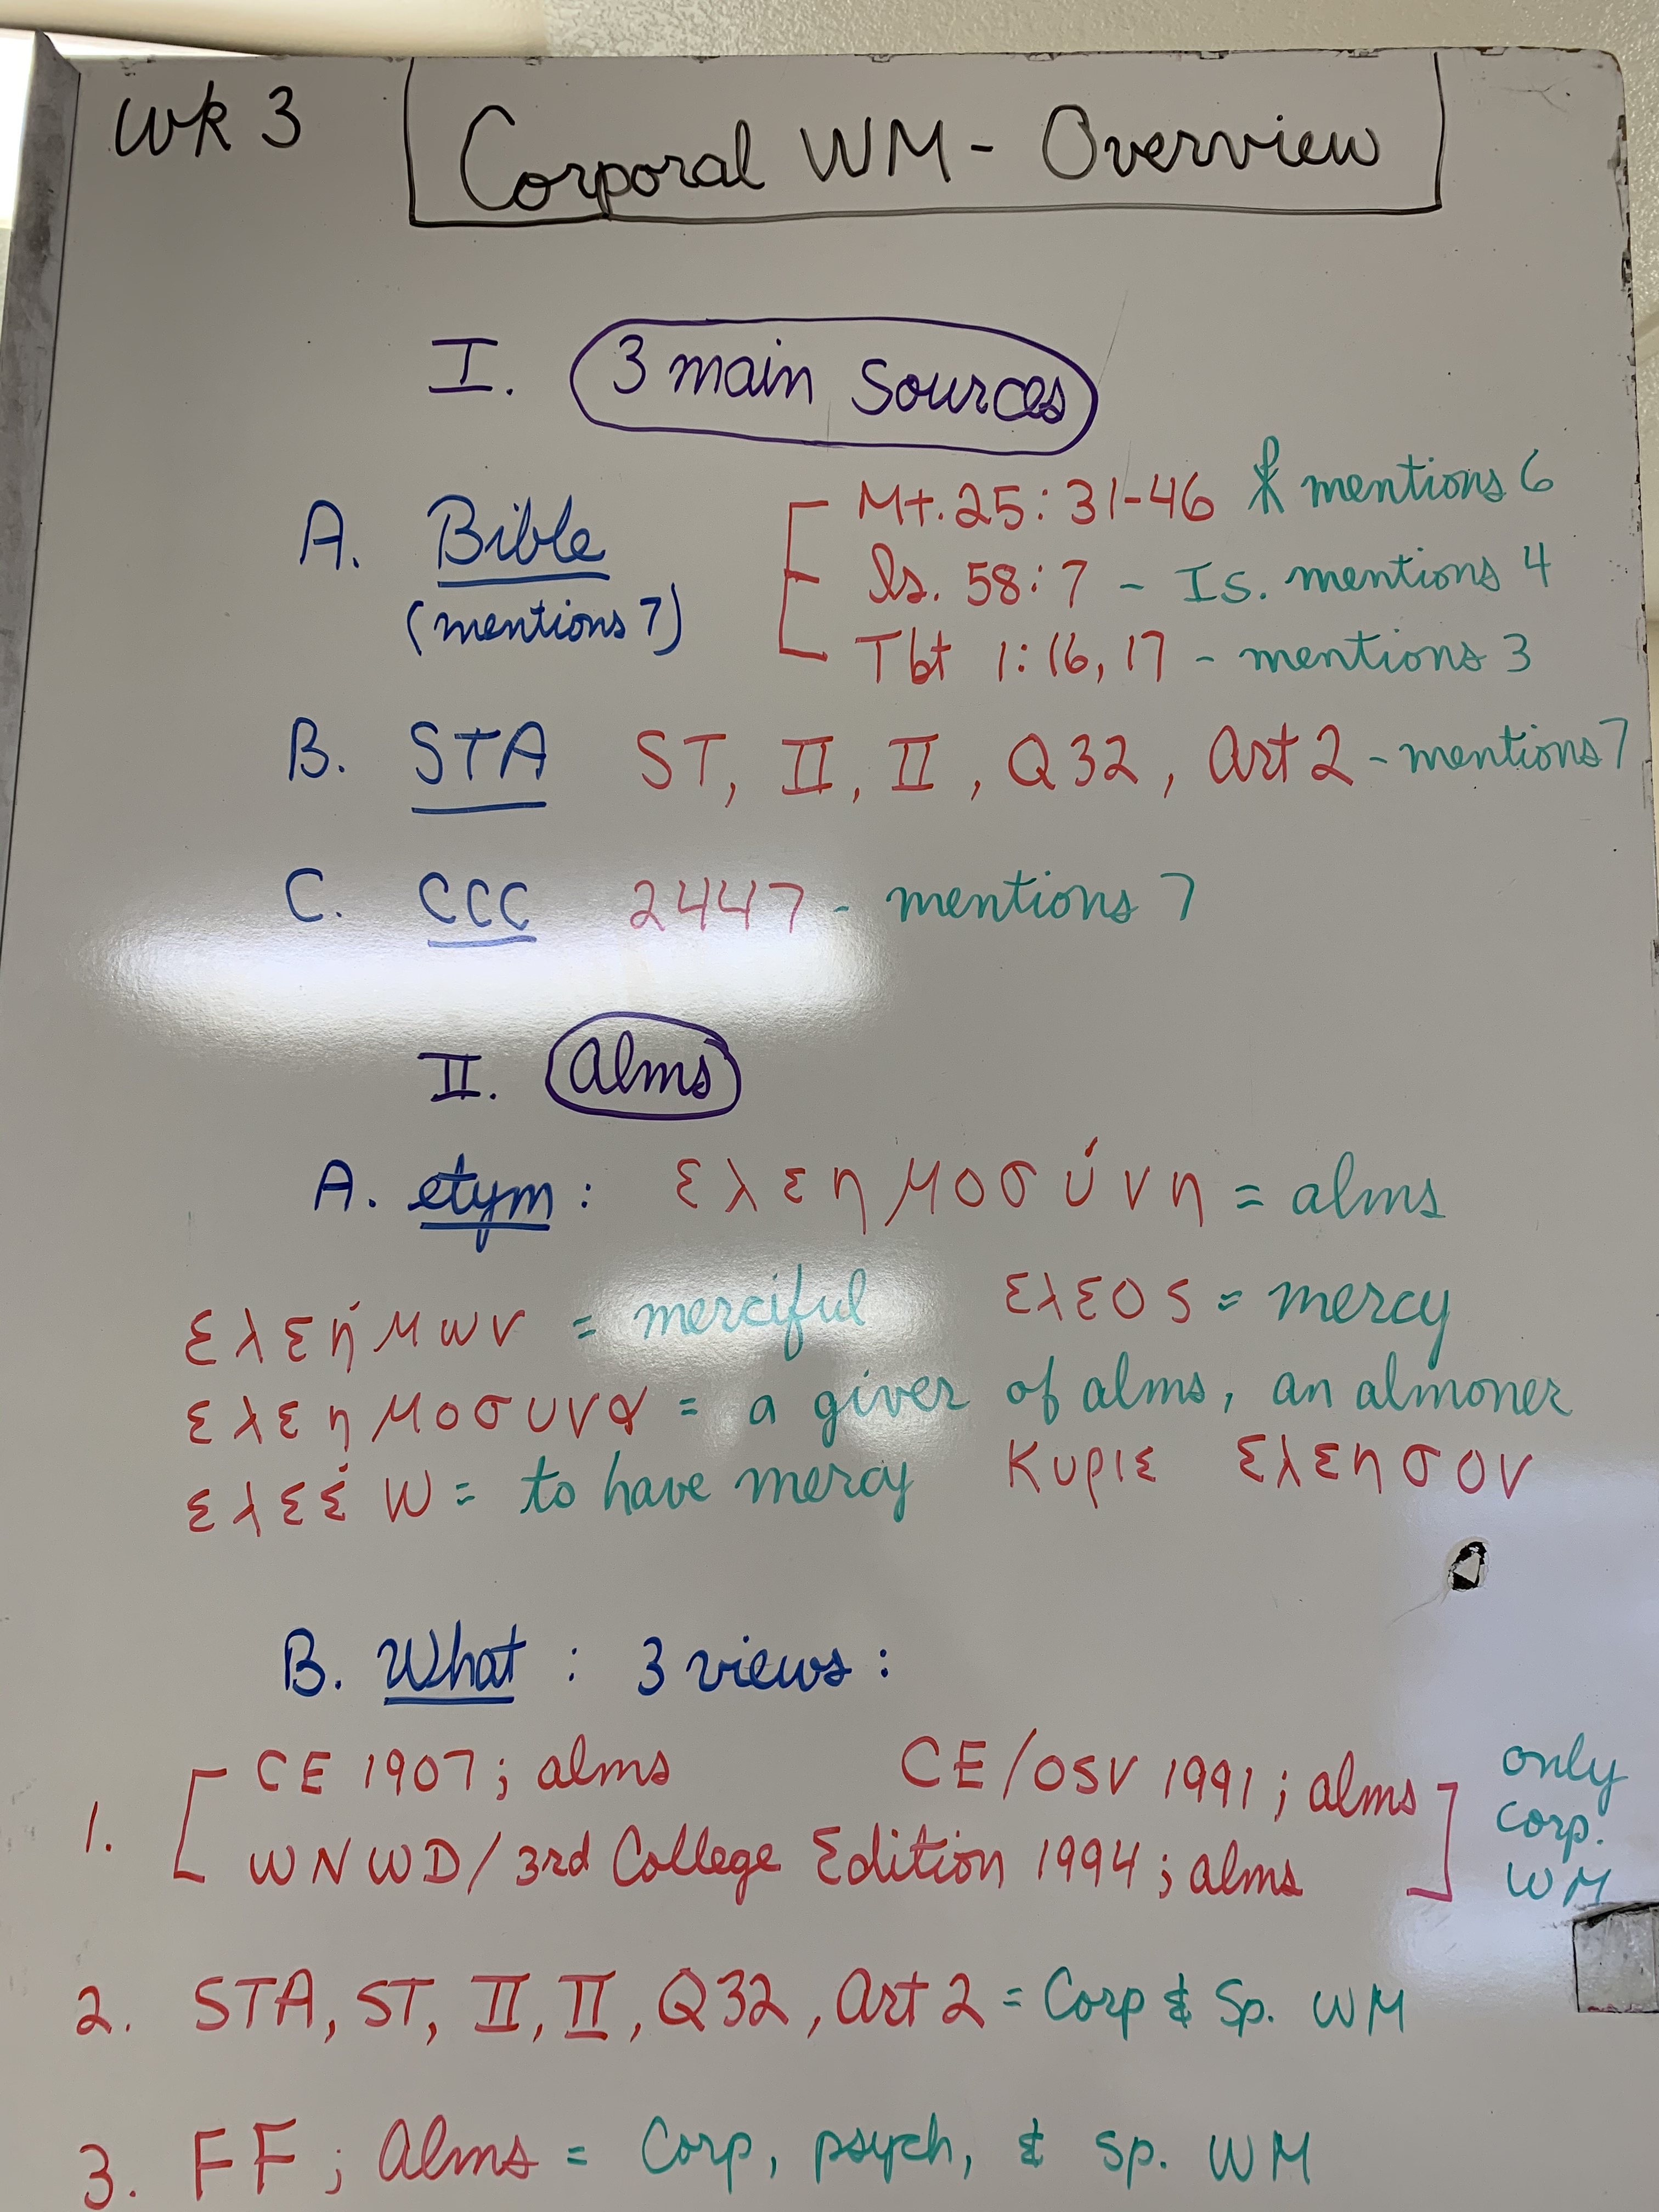 Wk 3 Corporal WM - Overview
I. 3 main sources
A. Bible
(mentions 7)
Mt. 25:31-46 mentions 6
Is. 58:7 - Is. mentions 4
Tbt 1:16, 17 - mentions 3
B. STA ST, II, II, Q32, Art 2 - mentions 7
C. CCC 2447 - mentions 7
II. Alms
A. etym: ελεημοσύνη = alms
ελεήμων = merciful ελεος = mercy
ελεημοσυνα = a giver of alms, an almoner
ελεέω = to have mercy Κυριε ελεησον
B. What: 3 views:
1. CE 1907; alms CE/OSV 1991; alms
WNWD/3rd College Edition 1994; alms
only
corp.
WM
2. STA, ST, II, II, Q32, Art 2 = Corp & Sp. WM
3. FF; Alms = Corp, psych, & sp. WM